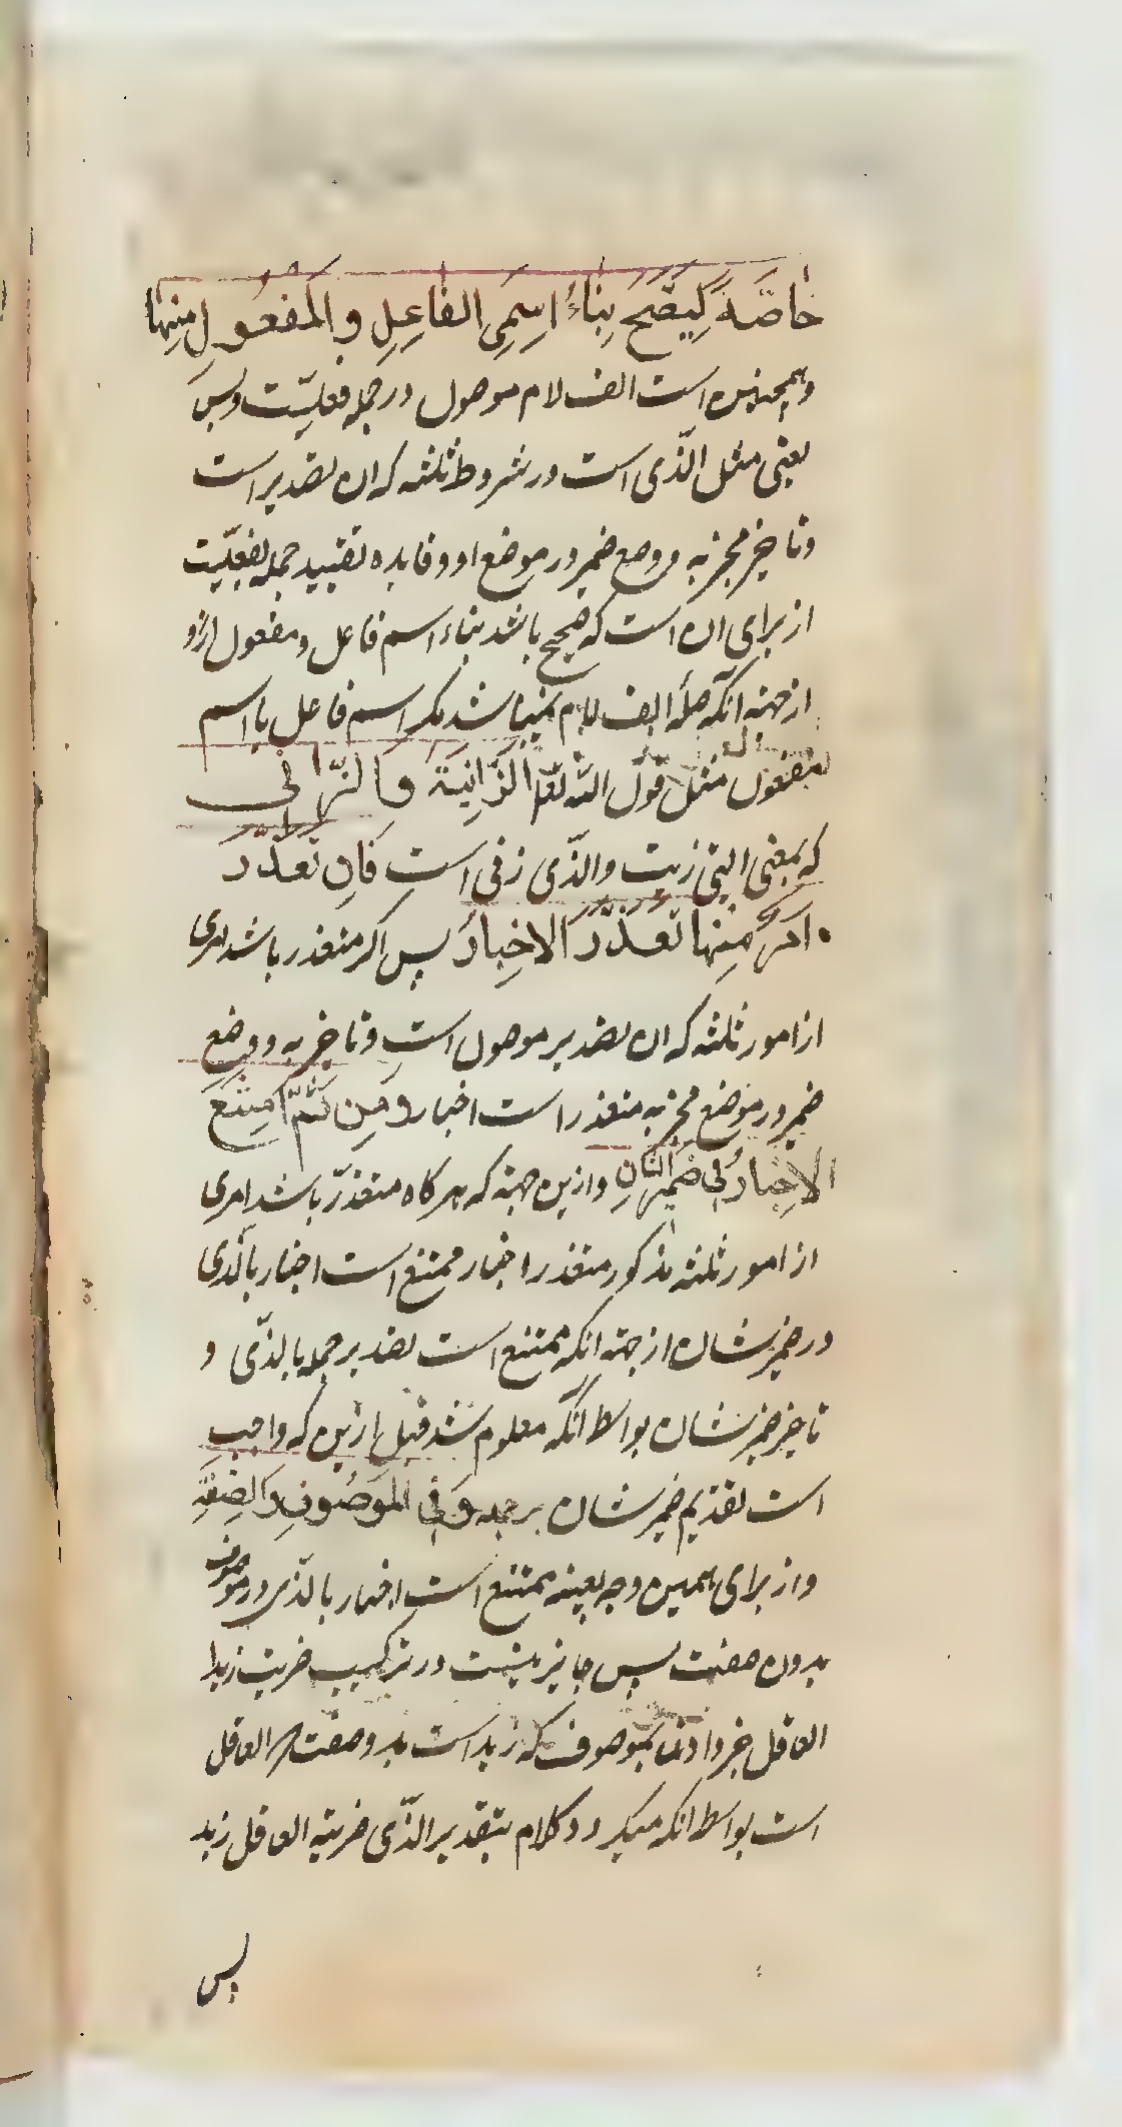 خاصّةً لِیَصِحَّ بِناءُ اسمِی الفاعِلِ و المَفعُولِ مِنها
و همچنین است الف لام موصول در جمله فعلیّت و بس
یعنی مثل الّذی است در شروط ثلثه که ان تصدیر است
و تاخیر مخبر به و وضع ضمیر در موضع او و فایده تقیید جمله بفعلیّت
از برای ان است که صحیح باشد بناء اسم فاعل و مفعول ازو
از جهته آنکه صله الف لام نمیباشد مکر اسم فاعل یا اسم
مفعول مثل قول الله تعا الزّانِیَة والزّانی
که بمعنی التی زنیت والذّی زنی است فَاِن تَعذّر
امرٌ مِنها تعذّرَ الاخبارُ پس اکر متعذر باشد امری
از امور ثلثه که ان تصدیر موصول است و تاخیر به و وضع
ضمیر در موضع مخبر به متعذر است اخبار و مِن ثَمَّ امتنع
الاِخبارُ فی ضَمیرِ الشّانِ و ازین جهته که هر کاه متعذرّ باشد امری
از امور ثلثه مذکور متعذر اخبار ممتنع است اخبار بالّذی
در ضمیر شان از جهته انکه ممتنع است تصدیر جمله بالذّی و
تاخیر ضمیر شان بواسطه آنکه معلوم شد قبل ازین که واجب
است تقدیم ضمیر شان بر جمله و فِی المَوصُوفِ والصِفَةِ
و از برای همین وجه بعینه ممتنع است اخبار بالذّی در موصوف
بدون صفت پس جایز نیست در ترکیب ضربت زیدا
العاقل خبر دادن بموصوف که زید است بدو صفتش العاقل
است بواسطه انکه میکردد کلام بتقدیر الذّی ضربته العاقل زید
پس